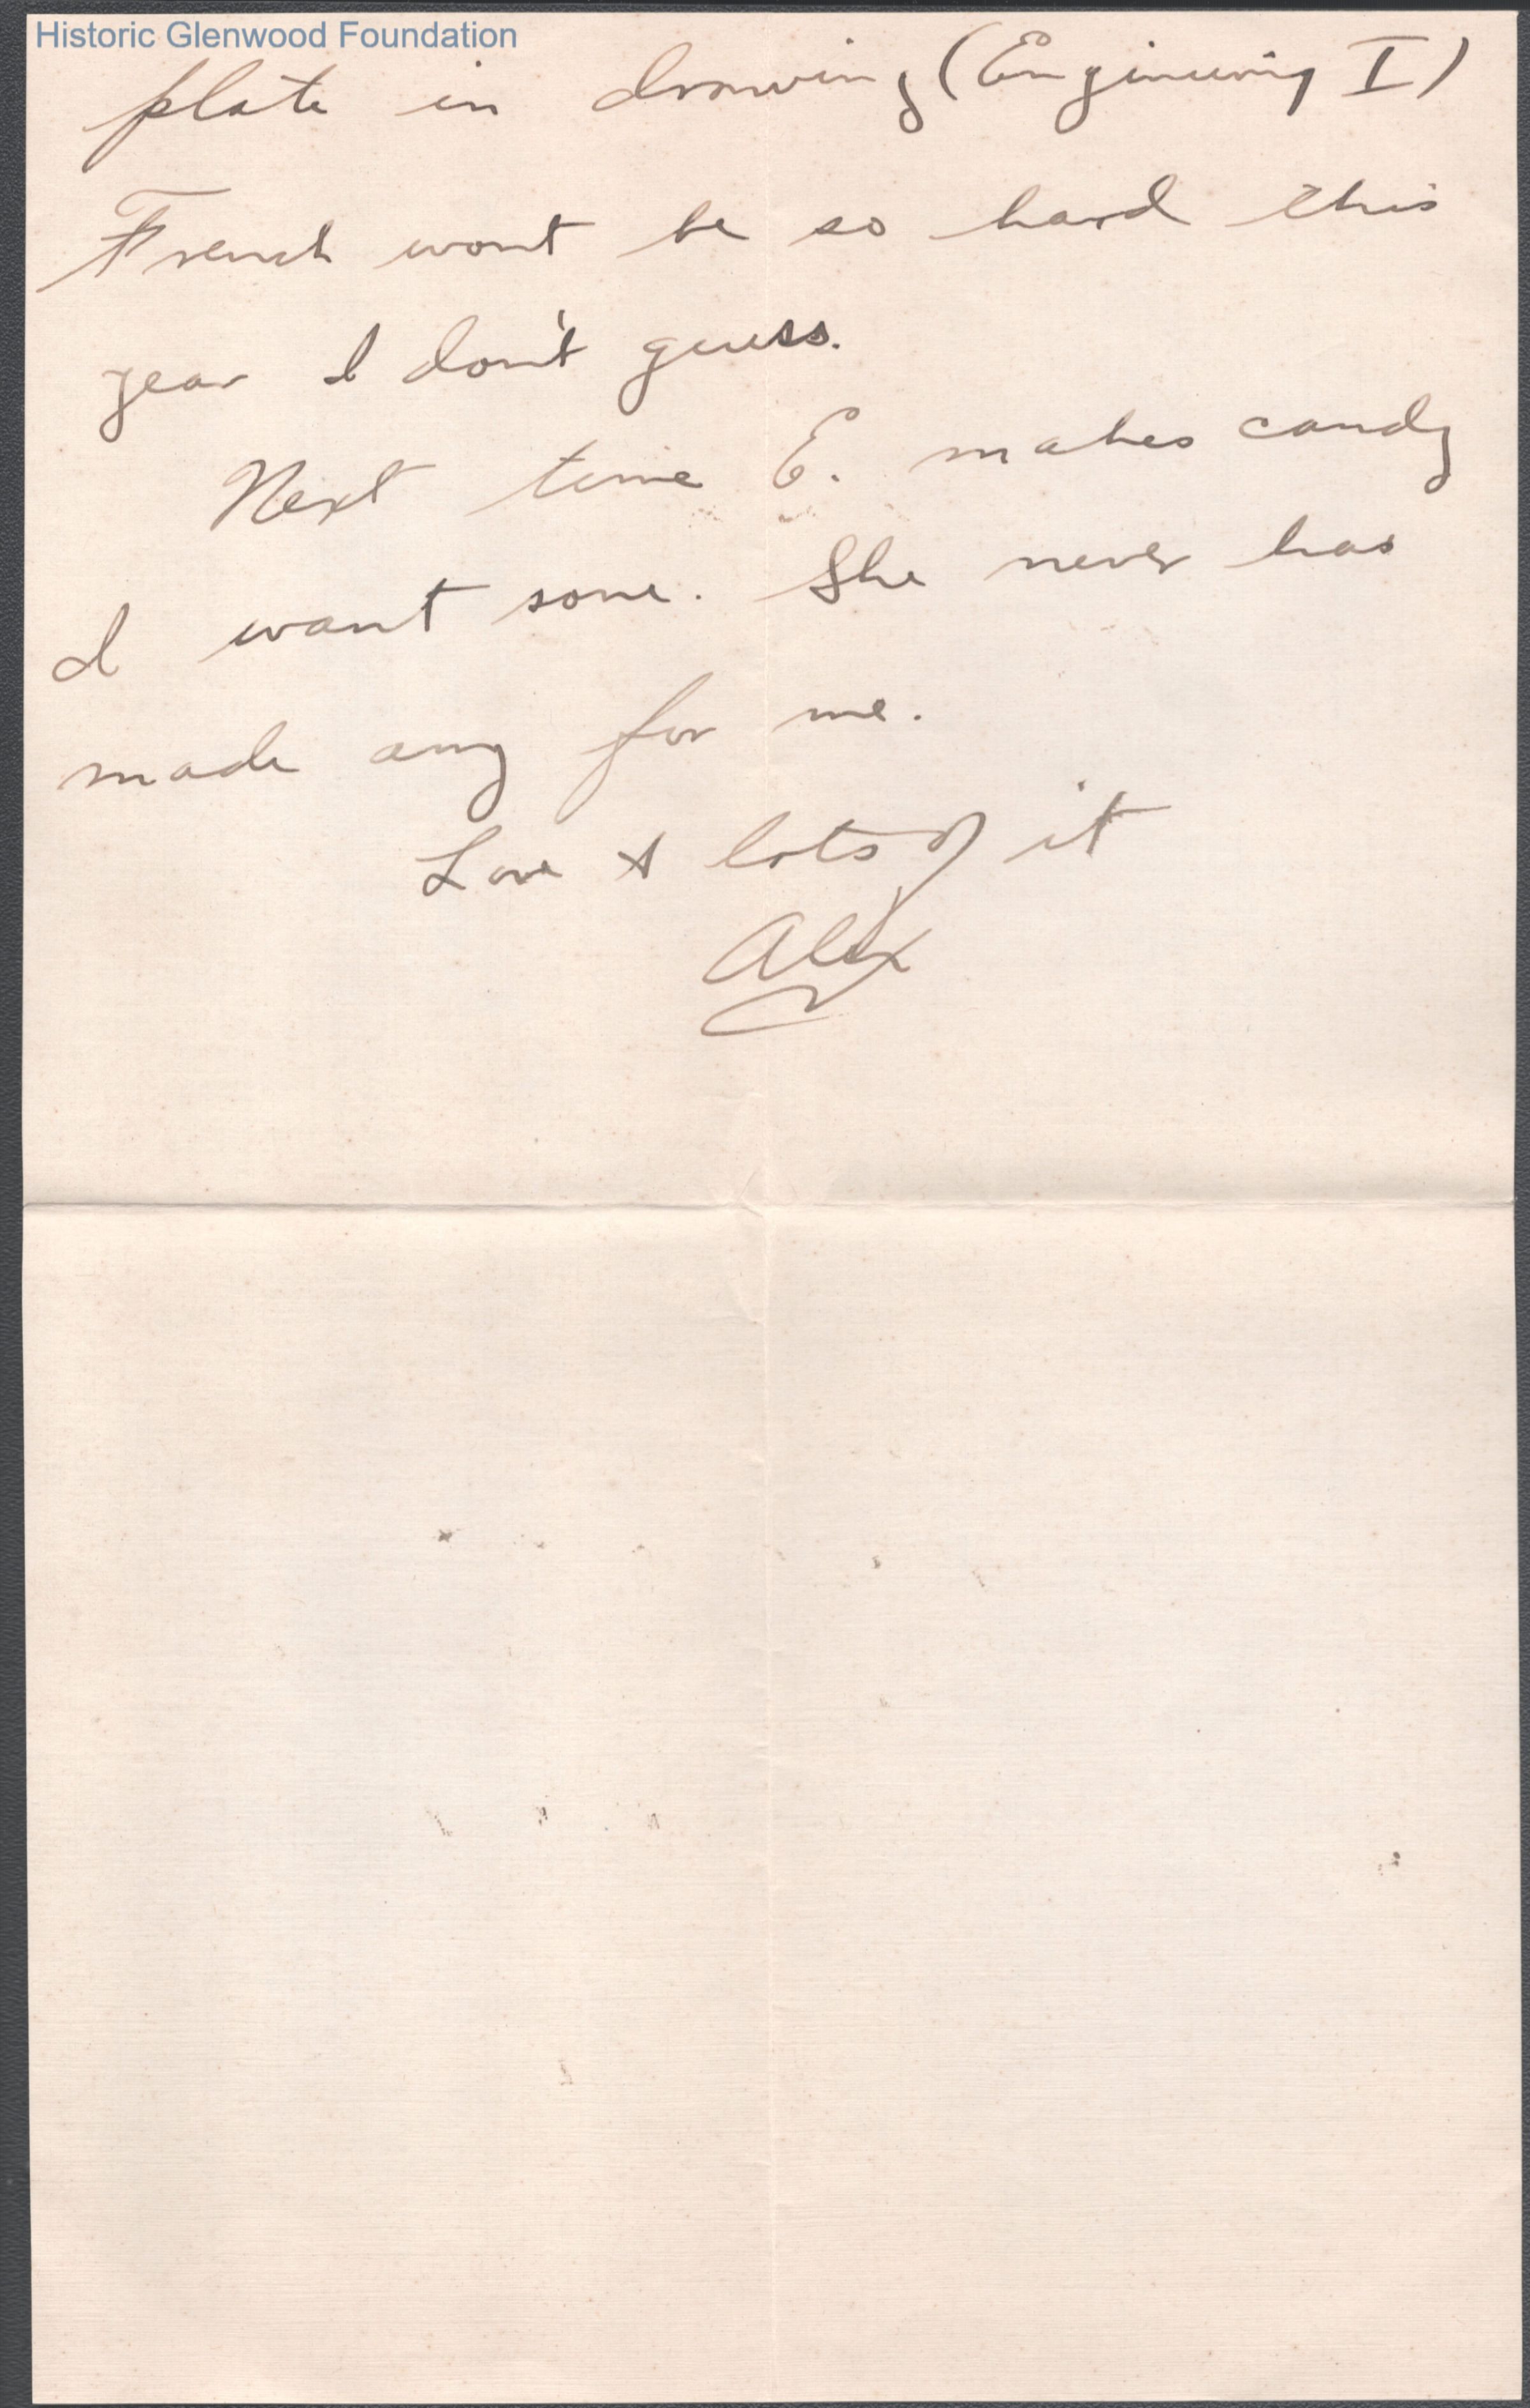 Historic Glenwood Foundation
plate in drawing (Engineering I)
French wont be so hard this
year I don't guess.
Next time E. makes candy
I want some. She never has
made any for me.
Love & lots of it
Alex